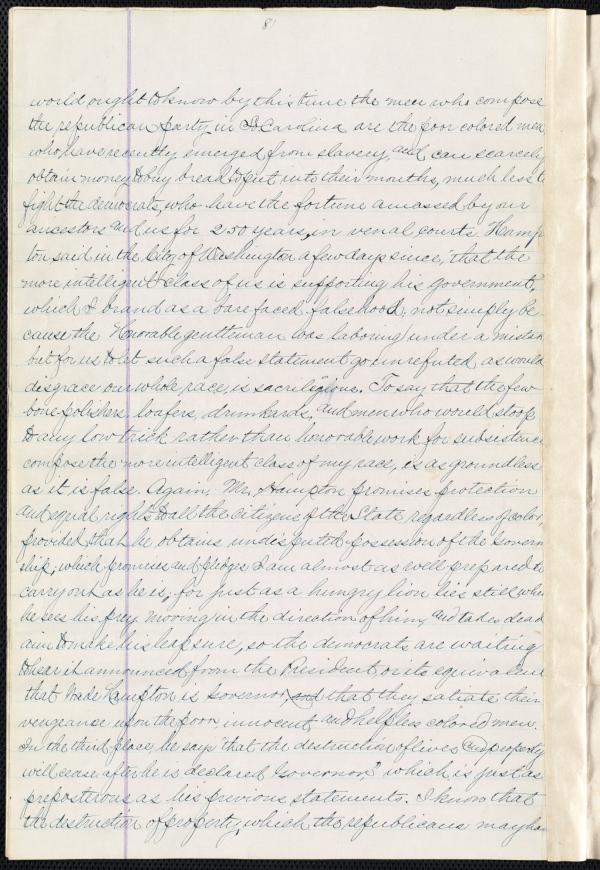 8
world ought to know by this time the men who compose
the republican party in So. Carolina are the poor colored men
who have recently emerged from slavery, and can scarcely
obtain money to buy bread to put into their mouths, much less to
fight the democrats, who have the fortune amassed by our
ancestors and us for 250 years, in venal courts. Hamp-
ton said in the City of Washington a few days since, "that the
more intelligent class of us is supporting his government,"
which I brand as a barefaced falsehood, not simply be-
cause the Honorable gentleman was laboring under a mistake
but for us to let such a false statement go unrefuted as would
disgrace our whole race, is sacriligious. To say that the few
bone polishers, loafers, drunkards, and men who would stoop
to any low trick rather than honorable work for subsistence
compose the more intelligent class of my race, is as groundless
as it is false. Again, Mr. Hampton promises protection
and equal rights to all the citizens of the State regardless of color,
provided that he obtains undisputed possession of the Governor
ship, which promises and pledges I am almost as well prepared to
carry out as he is, for just as a hungry lion lies still when
he sees his prey moving in the direction of him, and takes dead
aim to make his leap sure, so the democrats are waiting
to hear it announced from the President or its equivalent
that Wade Hampton is Governor, and that they satiate their
vengeance upon the poor, innocent and helpless colored men.
In the third place, he says "that the destruction of lives and property
will cease after he is declared Governor" which is just as
preposterous as his previous statements. I know that
the destruction of property, which the republicans may hav